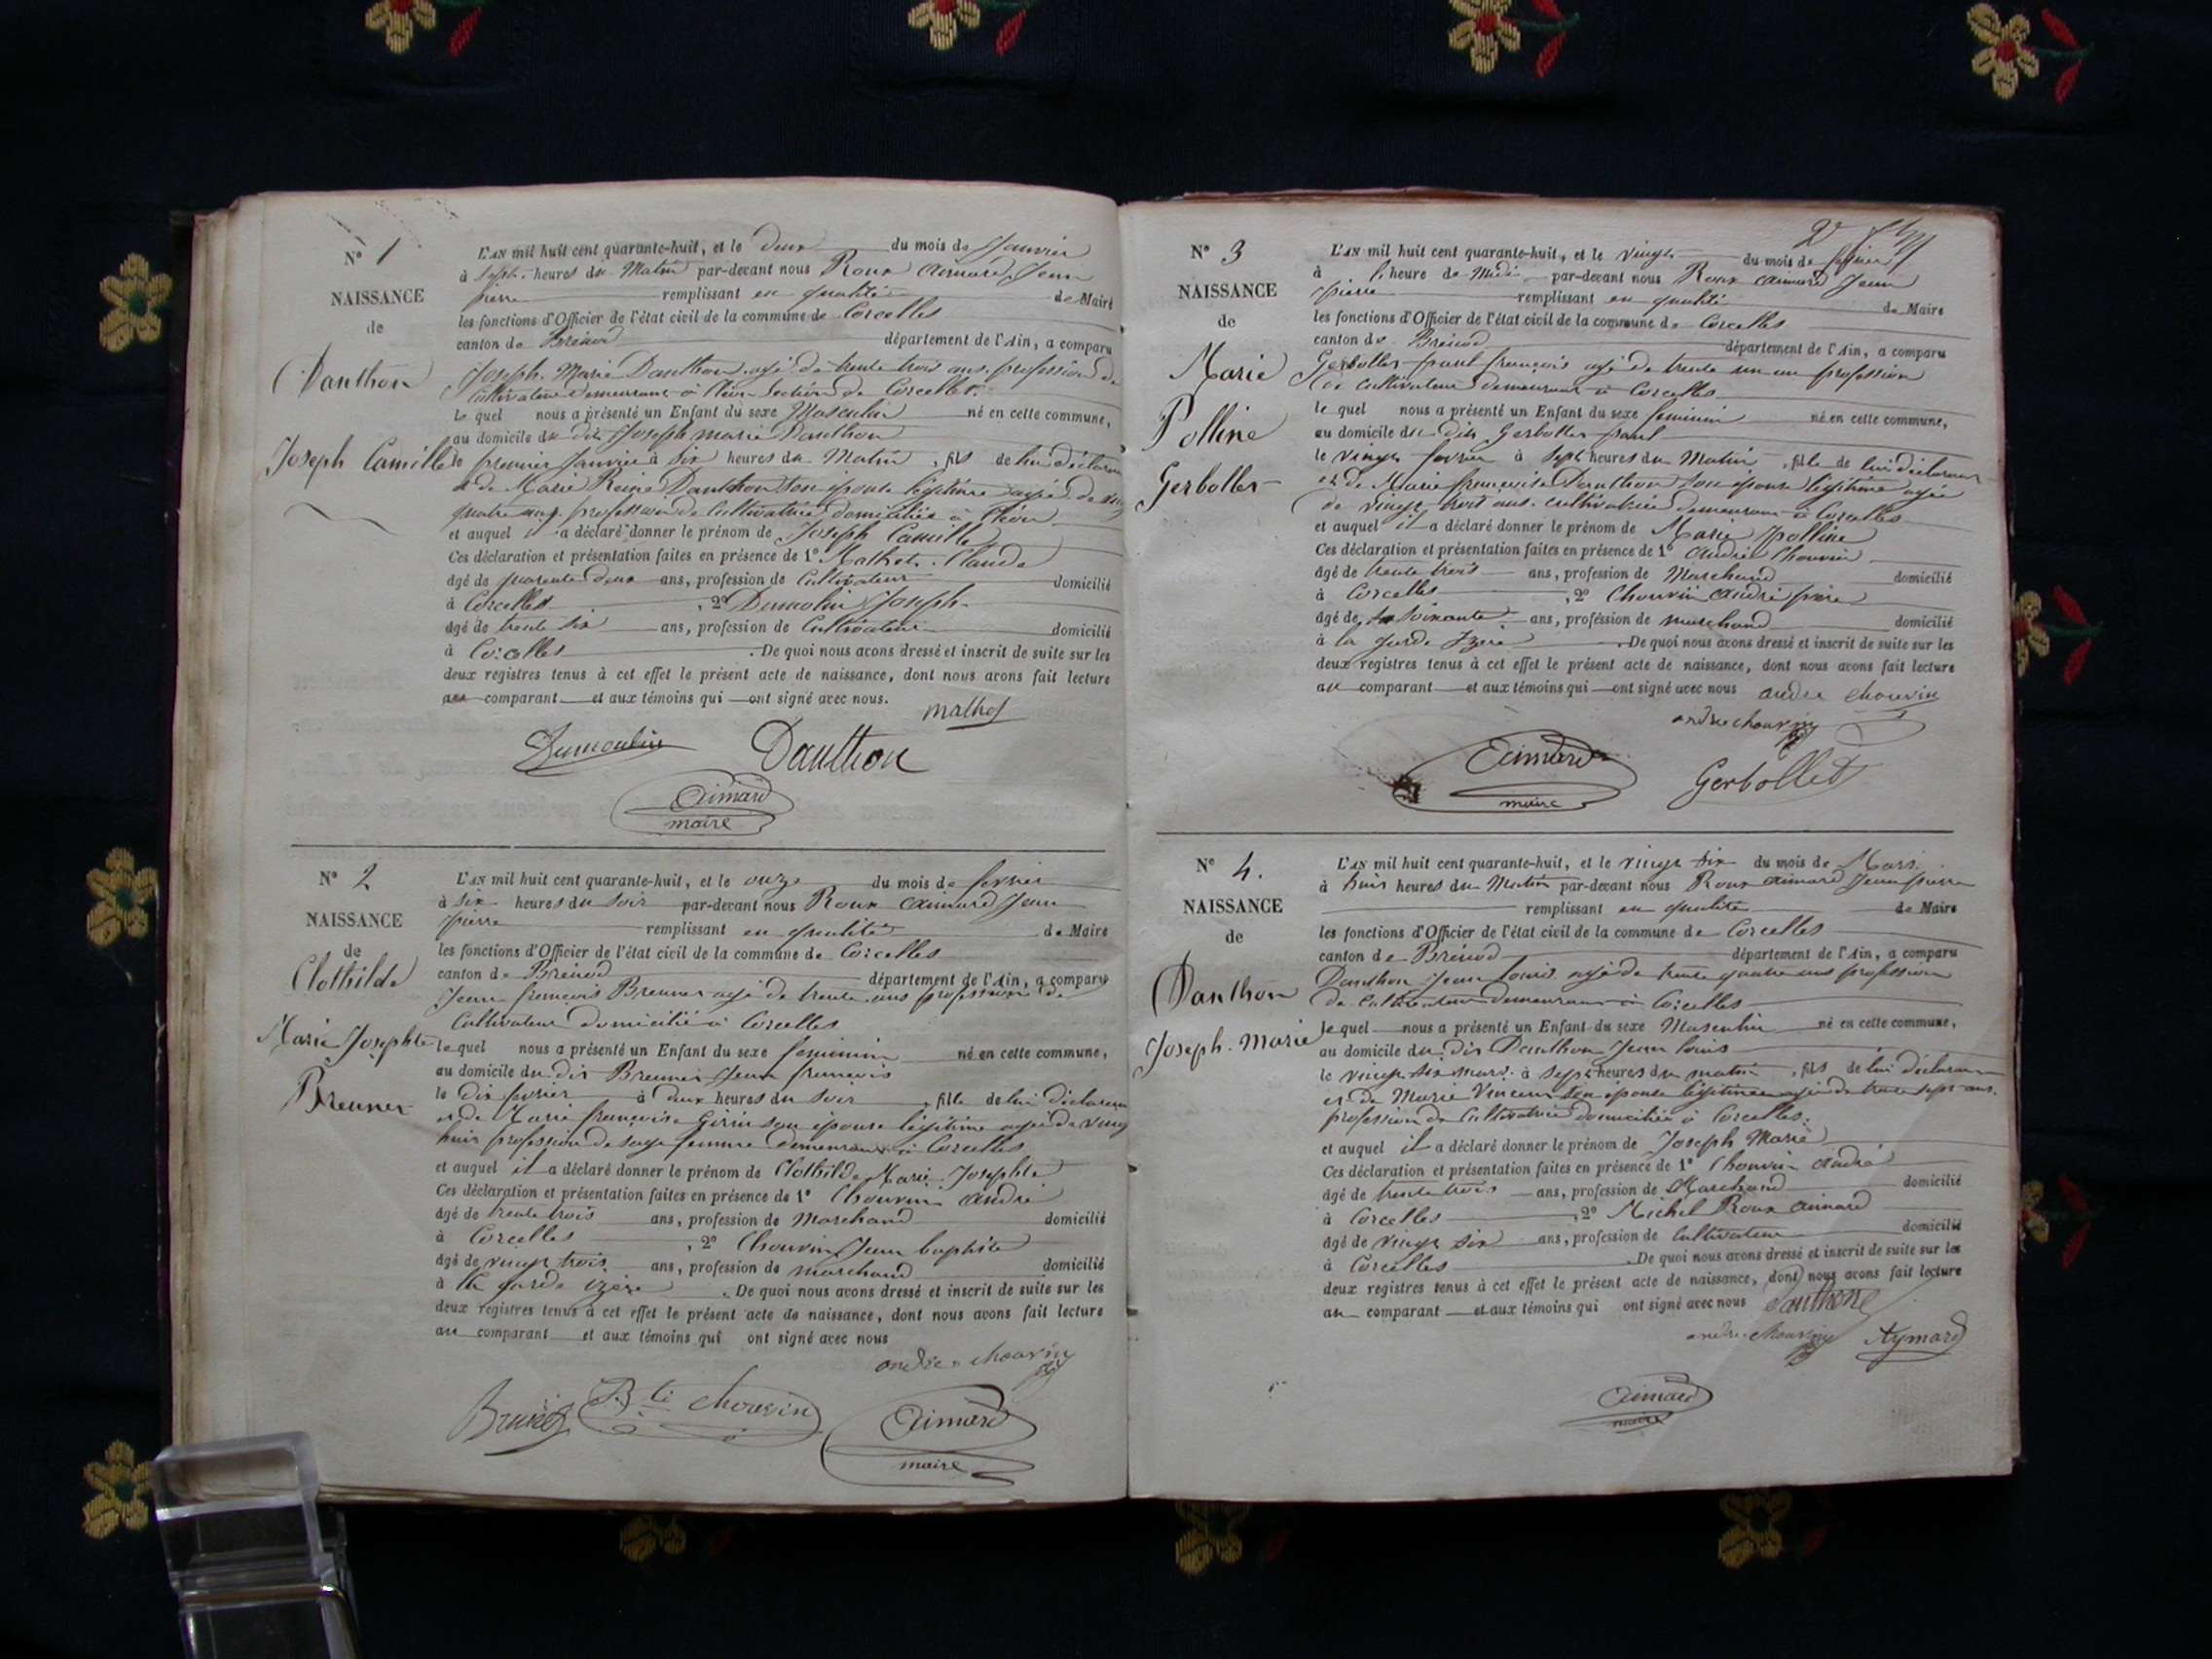 N° 1
NAISSANCE
de
Danthon
Joseph Camille
L'AN mil huit cent quarante-huit, et le deux du mois de Janvier
à sept heures du Matin par-devant nous Roux Aimard Jean
pierre remplissant en qualité de Maire
les fonctions d'Officier de l'état civil de la commune de Corcelles
canton de Brénod département de l'Ain, a comparu
Joseph Marie Danthon agé de trente trois ans profession de
Cultivateur demeurant à Cléon Section de Corcelles.
le quel nous a présenté un Enfant du sexe Masculin né en cette commune,
au domicile du dit Joseph marie Danthon
le premier Janvier à Six heures du Matin, fils de lui déclarant
et de Marie Reine Danthon son épouse légitime agée de
quatre ans profession de Cultivatrice domiciliée à Cléon
et auquel il a déclaré donner le prénom de Joseph Camille
Ces déclaration et présentation faites en présence de 1° Mathet Claude
âgé de quarante deux ans, profession de Cultivateur domicilié
à Corcelles, 2° Dumolin Joseph
âgé de trente six ans, profession de Cultivateur domicilié
à Corcelles. De quoi nous avons dressé et inscrit de suite sur les
deux registres tenus à cet effet le présent acte de naissance, dont nous avons fait lecture
au comparant et aux témoins qui ont signé avec nous.
mathet
Dumoulin Danthon
Aimard
maire
N° 2
NAISSANCE
de
Clothilde
Marie Josephte
Brunet
L'AN mil huit cent quarante-huit, et le onze du mois de fevrier
à six heures du soir par-devant nous Roux Aimard Jean
pierre remplissant en qualité de Maire
les fonctions d'Officier de l'état civil de la commune de Corcelles
canton de Brénod département de l'Ain, a comparu
Jean françois Brunet agé de trente ans profession de
Cultivateur domicilié à Corcelles
le quel nous a présenté un Enfant du sexe feminin né en cette commune,
au domicile du dit Brunet Jean francois
le dix fevrier à deux heures du soir, fille de lui déclarant
et de Marie françoise Girin son épouse légitime agée de vingt
huit profession de sage femme demeurant à Corcelles
et auquel il a déclaré donner le prénom de Clothilde Marie Josephte
Ces déclaration et présentation faites en présence de 1° Chouvin André
âgé de trente trois ans, profession de Marchand domicilié
à Corcelles, 2° Chouvin Jean baptiste
âgé de vingt trois ans, profession de marchand domicilié
à la garde izère. De quoi nous avons dressé et inscrit de suite sur les
deux registres tenus à cet effet le présent acte de naissance, dont nous avons fait lecture
au comparant et aux témoins qui ont signé avec nous
andre chouvin
Brunet B te chouvin Aimard
maire
N° 3
NAISSANCE
de
Marie
Polline
Gerbollet
L'AN mil huit cent quarante-huit, et le vingt du mois de fevrier
à l'heure de Midi par-devant nous Roux Aimard Jean
pierre remplissant en qualité de Maire
les fonctions d'Officier de l'état civil de la commune de Corcelles
canton de Brénod département de l'Ain, a comparu
Gerbollet paul françois agé de trente un an profession
de cultivateur demeurant à Corcelles
le quel nous a présenté un Enfant du sexe feminin né en cette commune,
au domicile du dit Gerbollet paul
le vingt fevrier à sept heures du Matin, fille de lui déclarant
et de Marie françoise Danthon son épouse légitime agée
de vingt trois ans cultivatrice demeurant à Corcelles
et auquel il a déclaré donner le prénom de Marie polline
Ces déclaration et présentation faites en présence de 1° André Chouvin
âgé de trente trois ans, profession de Marchand domicilié
à Corcelles, 2° Chouvin André père
âgé de soixante ans, profession de marchand domicilié
à la garde Izère. De quoi nous avons dressé et inscrit de suite sur les
deux registres tenus à cet effet le présent acte de naissance, dont nous avons fait lecture
au comparant et aux témoins qui ont signé avec nous andre chouvin
andre chouvin
Aimard
maire
Gerbollet
N° 4.
NAISSANCE
de
Danthon
Joseph Marie
L'AN mil huit cent quarante-huit, et le vingt six du mois de Mars
à huit heures du Matin par-devant nous Roux aimard Jean pierre
remplissant en qualité de Maire
les fonctions d'Officier de l'état civil de la commune de Corcelles
canton de Brénod département de l'Ain, a comparu
Danthon Jean louis agé de trente quatre ans profession
de Cultivateur demeurant à Corcelles
le quel nous a présenté un Enfant du sexe Masculin né en cette commune,
au domicile du dit Danthon Jean louis
le vingt six mars à sept heures du matin, fils de lui déclarant
et de Marie Vincent son épouse légitime agée de trente sept ans.
profession de Cultivatrice domiciliée à Corcelles.
et auquel il a déclaré donner le prénom de Joseph Marie
Ces déclaration et présentation faites en présence de 1° Chouvin André
âgé de trente trois ans, profession de Marchand domicilié
à Corcelles, 2° Michel Roux aimard
âgé de vingt six ans, profession de Cultivateur domicilié
à Corcelles. De quoi nous avons dressé et inscrit de suite sur les
deux registres tenus à cet effet le présent acte de naissance, dont nous avons fait lecture
au comparant et aux témoins qui ont signé avec nous Danthon
andre chouvin Aymard
Aimard
maire